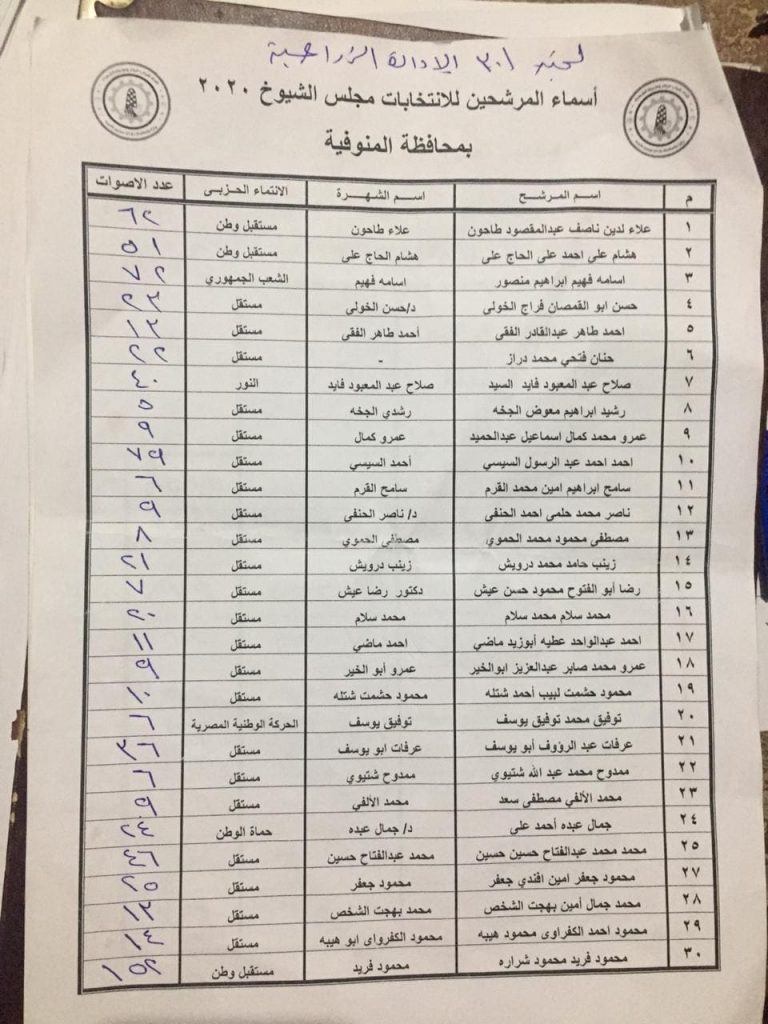 لجنة ٣٠١ الإدارة الزراعية
أسماء المرشحين للانتخابات مجلس الشيوخ ٢٠٢٠
بمحافظة المنوفية
م اسم المرشح اسم الشهرة الانتماء الحزبى عدد الاصوات
١ علاء لدين ناصف عبدالمقصود طاحون علاء طاحون مستقبل وطن ٦٢
٢ هشام على احمد على الحاج على هشام الحاج على مستقبل وطن ٥١
٣ اسامه فهيم ابراهيم منصور اسامه فهيم الشعب الجمهوري ٧٢
٤ حسن ابو القمصان فراج الخولى د/حسن الخولى مستقل ٢٣
٥ احمد طاهر عبدالقادر الفقى أحمد طاهر الفقى مستقل ١٢
٦ حنان فتحي محمد دراز - مستقل ٢٢
٧ صلاح عبد المعبود فايد السيد صلاح عبد المعبود فايد النور ٤٠
٨ رشيد ابراهيم معوض الجخه رشدي الجخه مستقل ٥
٩ عمرو محمد كمال اسماعيل عبدالحميد عمرو كمال مستقل ٩
١٠ احمد احمد عبد الرسول السيسي أحمد السيسي مستقل ٧٩
١١ سامح ابراهيم امين محمد القرم سامح القرم مستقل ٦
١٢ ناصر محمد حلمى احمد الحنفى د/ ناصر الحنفى مستقل ٩
١٣ مصطفى محمود محمد الحموي مصطفى الحموي مستقل ٨
١٤ زينب حامد محمد درويش زينب درويش مستقل ٢١
١٥ رضا أبو الفتوح محمود حسن عيش دكتور رضا عيش مستقل ٧
١٦ محمد سلام محمد سلام محمد سلام مستقل ٢٠
١٧ احمد عبدالواحد عطيه أبوزيد ماضي احمد ماضي مستقل ١١
١٨ عمرو محمد صابر عبدالعزيز ابوالخير عمرو أبو الخير مستقل ٩
١٩ محمود حشمت لبيب أحمد شتله محمود حشمت شتله مستقل ١٠
٢٠ توفيق محمد توفيق يوسف توفيق يوسف الحركة الوطنية المصرية ٦
٢١ عرفات عبد الرؤوف أبو يوسف عرفات ابو يوسف مستقل ٣٦
٢٢ ممدوح محمد عبد الله شتيوي ممدوح شتيوي مستقل ٦
٢٣ محمد الألفي مصطفى سعد محمد الألفي مستقل ٩
٢٤ جمال عبده أحمد على د/ جمال عبده حماة الوطن ٢٣
٢٥ محمد محمد عبدالفتاح حسين حسين محمد عبدالفتاح حسين مستقل ٤٦
٢٧ محمود جعفر امين افندي جعفر محمود جعفر مستقل ٢٥
٢٨ محمد جمال أمين بهجت الشخص محمد بهجت الشخص مستقل ١٢
٢٩ محمود احمد الكفراوى محمود هيبه محمود الكفرواى ابو هيبه مستقل ١٤
٣٠ محمود فريد محمود شراره محمود فريد مستقبل وطن